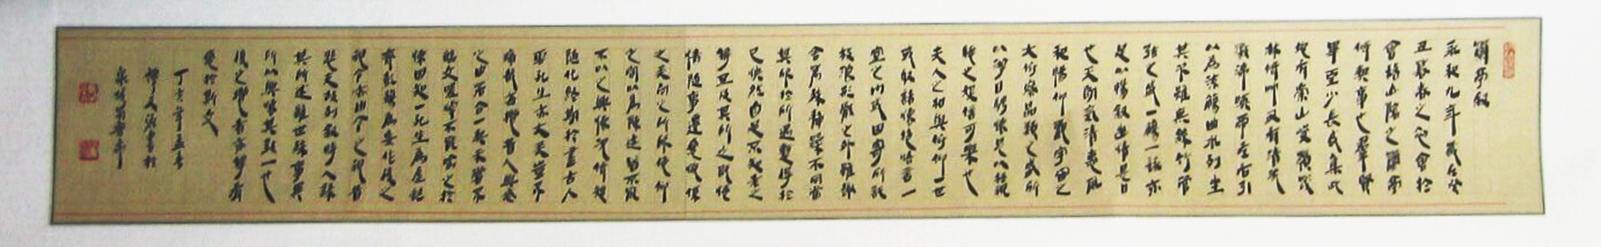 蘭亭叙
永和九年歲在癸
丑暮春之初會於
會稽山陰之蘭亭
修禊事也群賢
畢至少長咸集此
地有崇山峻領茂
林修竹又有清流
激湍暎帶左右引
以為流觴曲水列坐
其次雖無絲竹管
弦之盛一觴一詠亦
足以暢叙幽情是日
也天朗氣清惠風
和暢仰觀宇宙之
大俯察品類之盛所
以遊目騁懷足以極視
聽之娛信可樂也
夫人之相與俯仰一世
或取諸懷抱悟言一
室之内或因寄所託
放浪形骸之外雖趣
舍萬殊靜躁不同當
其欣於所遇暫得於
己快然自足不知老之
將至及其所之既倦
情隨事遷感慨係
之矣向之所欣俛仰
之間以為陳迹猶不能
不以之興懷況修短
隨化終期於盡古人
云死生亦大矣豈不
痛哉每攬昔人興感
之由若合一契未嘗不
臨文嗟悼不能喻之於
懷固知一死生為虛誕
齊彭殤為妄作後之
視今亦由今之視昔
悲夫故列叙時人錄
其所述雖世殊事異
所以興懷其致一也
後之攬者亦將有
感於斯文
丁亥年五月
書於